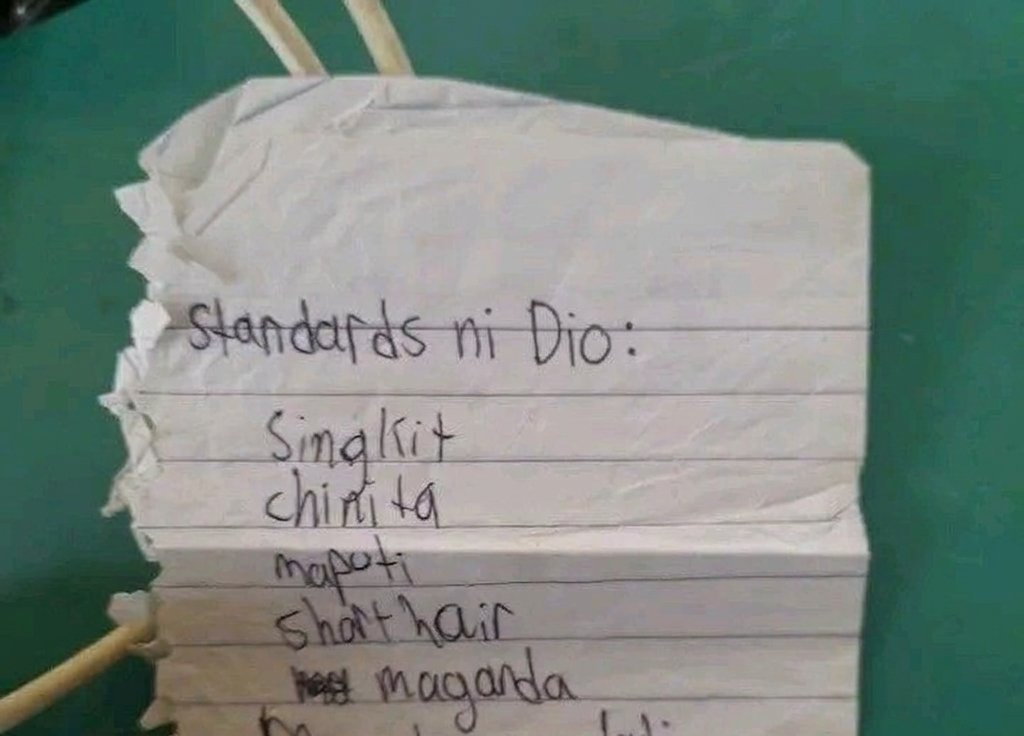 Standards ni Dio:
Singkit
chinita
maputi
short hair
maganda